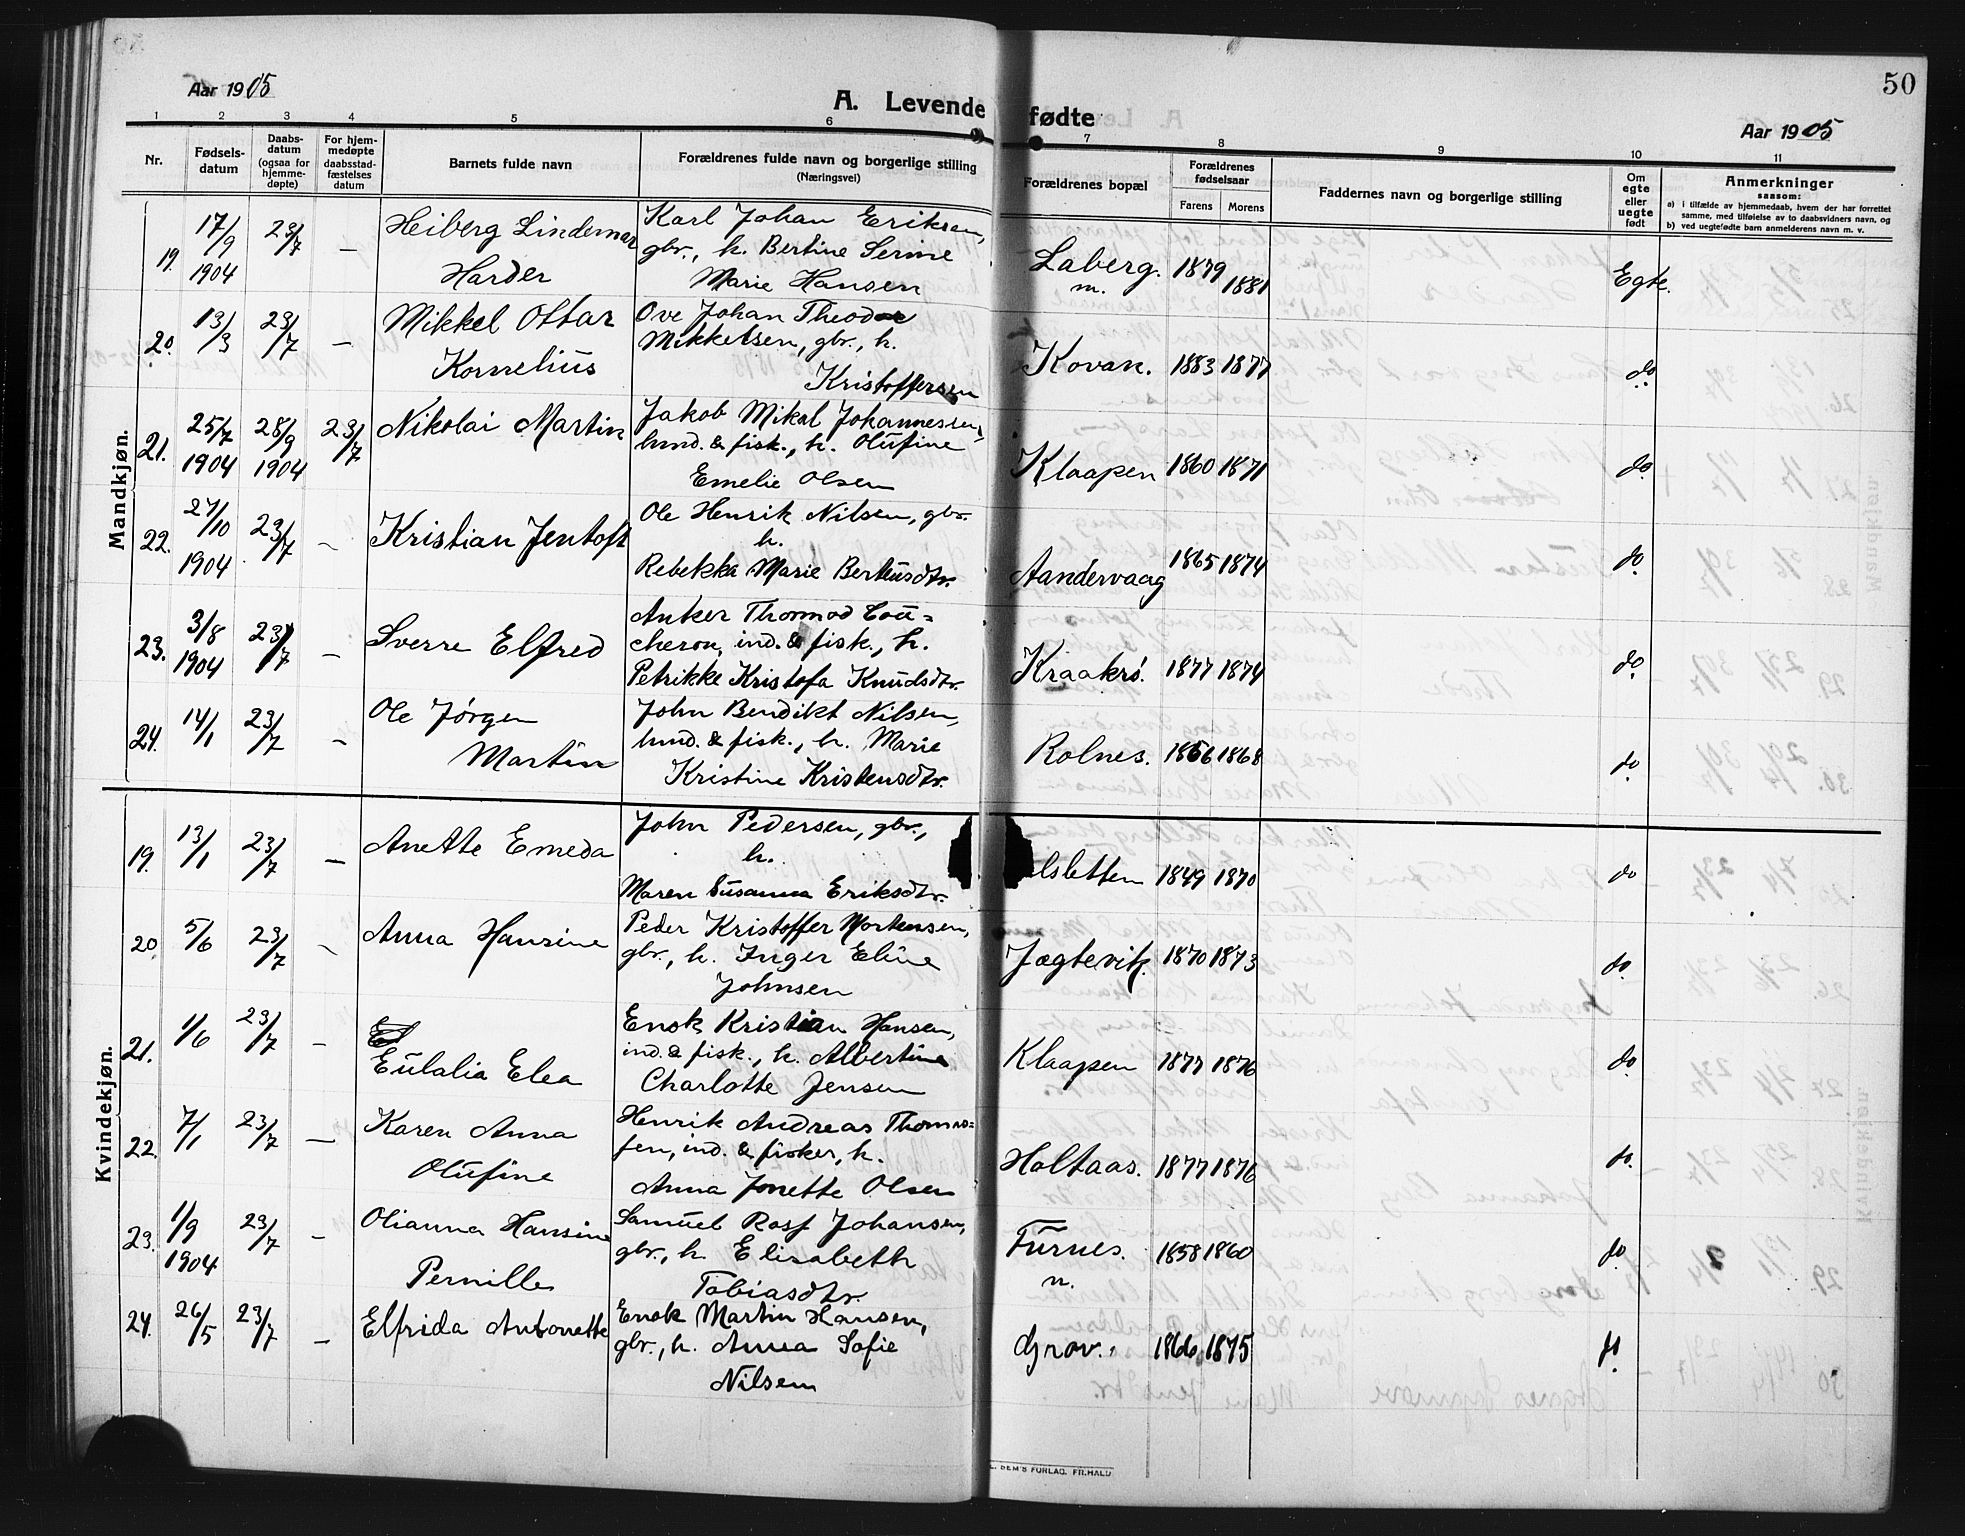 50
Aar 1905
A. Levende fødte
Aar 1905
1 2 3 4 5 6 7 8 9 10 11
Nr.
Fødsels-
datum
Daabs-
datum
(ogsaa for
hjemme-
døpte)
For hjem-
medøpte
daabsstad-
fæstelses
datum
Barnets fulde navn
Forældrenes fulde navn og borgerlige stilling
(Næringsvei)
Forældrenes bopæl
Forældrenes
fødselsaar
Farens Morens
Faddernes navn og borgerlige stilling
Om
egte
eller
uegte
født
Anmerkninger
saasom:
a) i tilfælde av hjemmedaab, hvem der har forrettet
samme, med tilføielse av to daabsvidners navn, og
b) ved uegtefødt barn anmelderens navn m. v.
Mandkjøn.
19. 17/9 1904 23/7 — Heiberg Lindemar
Harder
Karl Johan Eriksen,
gbr., h. Bertine Serine
Marie Hansen
Laberg. m. 1879 1881 Egte.
20. 13/3 23/7 — Mikkel Ottar
Kornelius
Ove Johan Theodor
Mikkelsen, gbr., h.
Kristoffersen
Kovan. 1883 1877 do.
21. 25/7 1904 28/9 1904 23/7 Nikolai Martin
Jakob Mikal Johannessen,
lund. & fisk., h. Olufine
Emelie Olsen
Klaapen 1860 1871 do
22. 27/10 1904 23/7 — Kristian Jentoft
Ole Henrik Nilsen, gbr.
h.
Rebekka Marie Berteusdtr.
Aandervaag 1865 1874 do.
23. 3/8 1904 23/7 — Sverre Elfred
Anker Thormod Cou=
cheron, ind. & fisk., h.
Petrikke Kristofa Knudsdtr.
Kraakrø. 1877 1874 do.
24. 14/1 23/7 — Ole Jørgen
Martin
John Bendikt Nilsen,
lund. & fisk., h. Marie
Kristine Kristensdtr.
Rolnes. 1866 1868 do.
Kvindekjøn.
19. 13/1 23/7 — Anette Emeda
John Pedersen, gbr.,
h.
Maren Susanna Eriksdtr.
lsletten 1849 1870 do
20. 5/6 23/7 — Anna Hansine
Peder Kristoffer Mortensen,
gbr., h. Inger Eline
Johnsen
Jægtevik. 1870 1873 do.
21. 1/6 23/7 —
Eulalia Elea
Enok Kristian Hansen,
ind. & fisk., h. Albertine
Charlotte Jensen
Klaapen 1877 1876 do.
22. 7/1 23/7 — Karen Anna
Olufine
Henrik Andreas Thomas=
sen, ind. & fisker, h.
Anna Jonette Olsen
Holtaas. 1877 1876 do.
23. 1/9 1904 23/7 — Olianna Hansine
Pernille
Samuel Rasf Johansen,
gbr., h. Elisabeth
Tobiasdtr.
Furnes. n. 1858 1860 do.
24. 26/5 23/7 — Elfrida Antonette
Enok Martin Hansen,
gbr., h. Anna Sofie
Nilsen
Grov. 1866 1875 do.
SEM'S FORLAG, FR.HALD